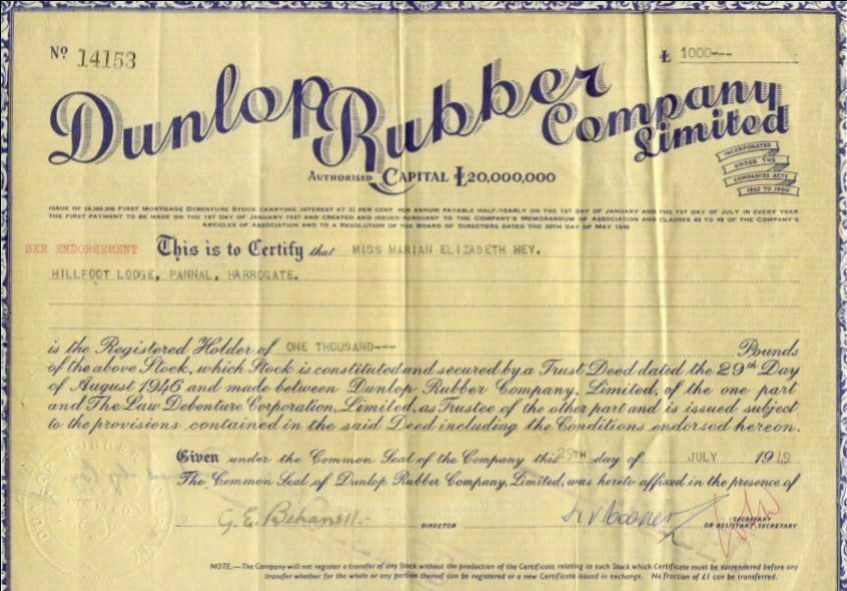 Nº 14153
£ 1000---
Dunlop Rubber Company Limited
INCORPORATED UNDER THE COMPANIES ACTS 1862 TO 1900
AUTHORISED CAPITAL £20,000,000
FIRST MORTGAGE DEBENTURE STOCK CARRYING INTEREST AT PER CENT PER ANNUM PAYABLE HALF-YEARLY ON THE 1ST DAY OF JANUARY AND THE 1ST DAY OF JULY IN EVERY YEAR
THE FIRST PAYMENT TO BE MADE ON THE 1ST DAY OF JANUARY 1947 AND CREATED AND ISSUED PURSUANT TO THE COMPANY'S MEMORANDUM OF ASSOCIATION AND CLAUSES OF THE COMPANY'S
ARTICLES OF ASSOCIATION AND TO A RESOLUTION OF THE BOARD OF DIRECTORS DATED THE DAY OF MAY 1946
SEE ENDORSEMENT This is to Certify that MISS MARIAN ELIZABETH HEY.
HILLFOOT LODGE, PANNAL, HARROGATE.
is the Registered Holder of ONE THOUSAND--- Pounds
of the above Stock, which Stock is constituted and secured by a Trust Deed dated the 29th Day
of August 1946 and made between Dunlop Rubber Company, Limited, of the one part
and The Law Debenture Corporation, Limited, as Trustee of the other part and is issued subject
to the provisions contained in the said Deed including the Conditions endorsed hereon.
Given under the Common Seal of the Company this 29TH day of JULY 19
The Common Seal of Dunlop Rubber Company, Limited, was hereto affixed in the presence of
DIRECTOR
SECRETARY
OR ASSISTANT SECRETARY
NOTE.—The Company will not register a transfer of any Stock without the production of the Certificate relating to such Stock which Certificate must be surrendered before any
transfer whether for the whole or any portion thereof can be registered or a new Certificate issued in exchange. No fraction of £1 can be transferred.